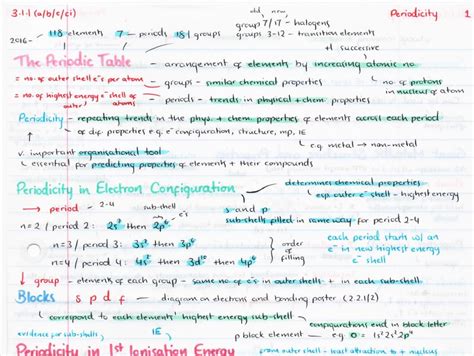 3.1.1 (a/b/c/ci) old new Periodicity 1
group 7/17 - halogens
2016 - 118 elements 7 - periods 18 groups groups 3-12 - transition elements
↓ successive
The Periodic Table - arrangement of elements by increasing atomic no.
= no. of outer shell e⁻s per atom - groups - similar chemical properties = no. of protons in nucleus of atom
= no. of highest energy e⁻ shell of outer atoms - periods - trends in physical + chem properties
Periodicity - repeating trends in the phys + chem properties of elements across each period
of dif. properties e.g. e⁻ configuration, structure, mp, IE
e.g. metal → non-metal
v. important organisational tool
essential for predicting properties of elements + their compounds
Periodicity in Electron Configuration determines chemical properties
→ period - 2-4 sub-shell e⁻s s and p esp. outer e⁻ shell - highest energy
n=2 / period 2: 2s² then 2p⁶ sub-shell filled in same way for period 2-4
n=3 / period 3: 3s² then 3p⁶ order of filling each period starts w/ an
n=4 / period 4: 4s² then 3d¹⁰ then 4p⁶ e⁻ in new highest energy shell
↓ group - elements of each group - same no. of e⁻s in outer shells + in each sub-shell.
Blocks s p d f - diagram on electrons and bonding poster (2.2.1|2)
correspond to each elements' highest energy sub-shell configurations end in block letter
evidence for sub-shells IE p block element - e.g. O = 1s² 2s² 2p⁴
Periodicity in 1st Ionisation Energy from outer shell